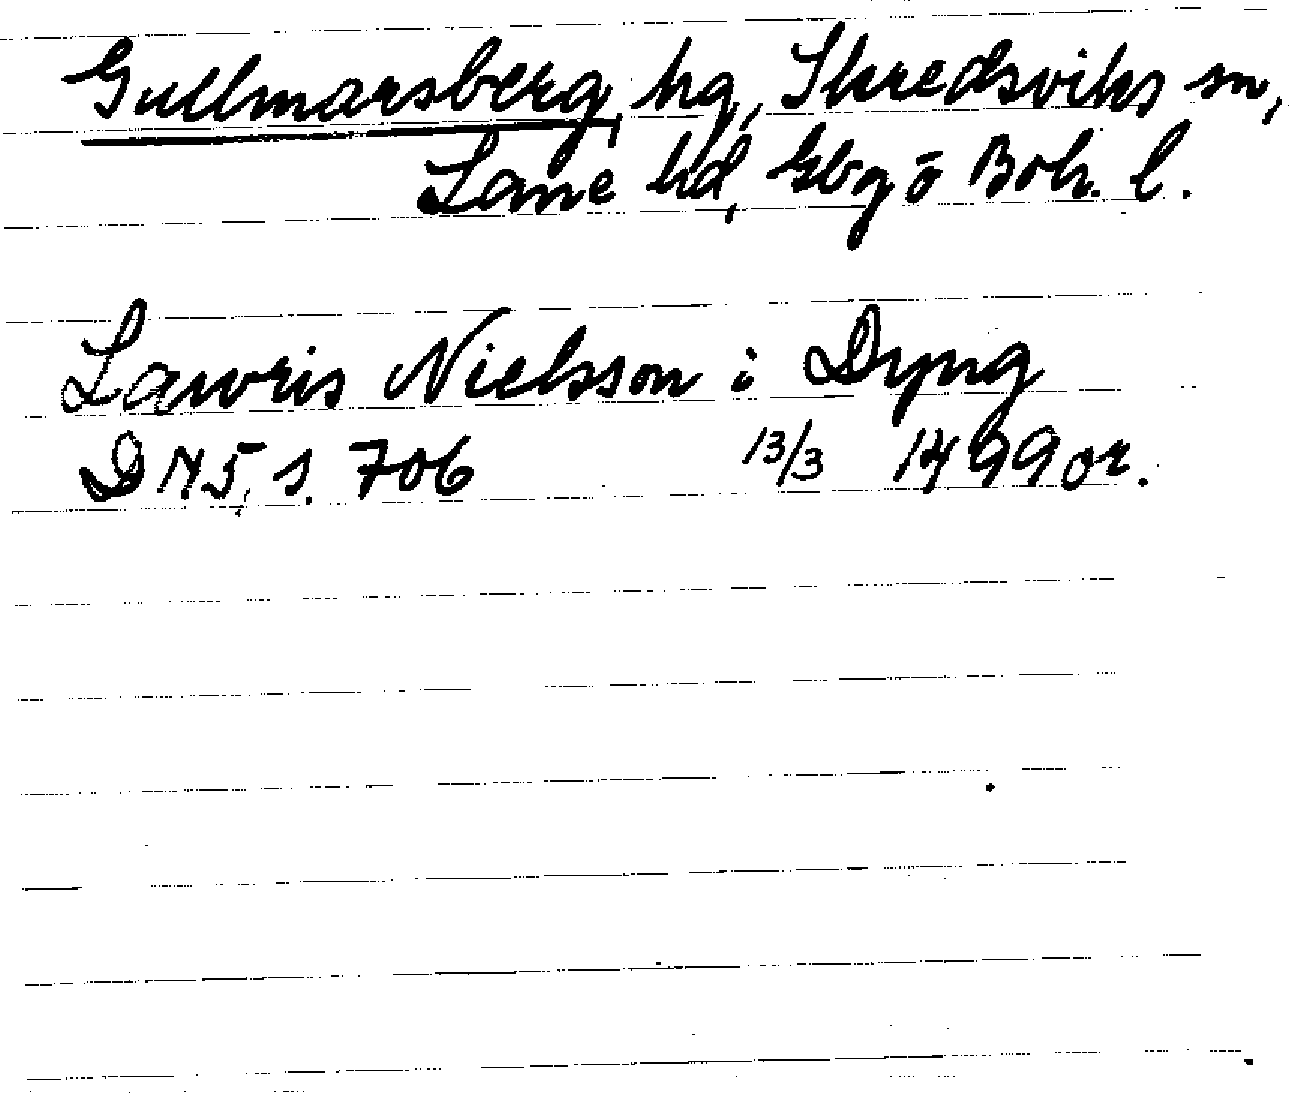 Gullmarsberg, hg, Skredsviks sn,
Lane hd, Gbg o Boh. l.
Lawris Nielsson i Dyng
DN 5, s. 706 13/3 1499 or.